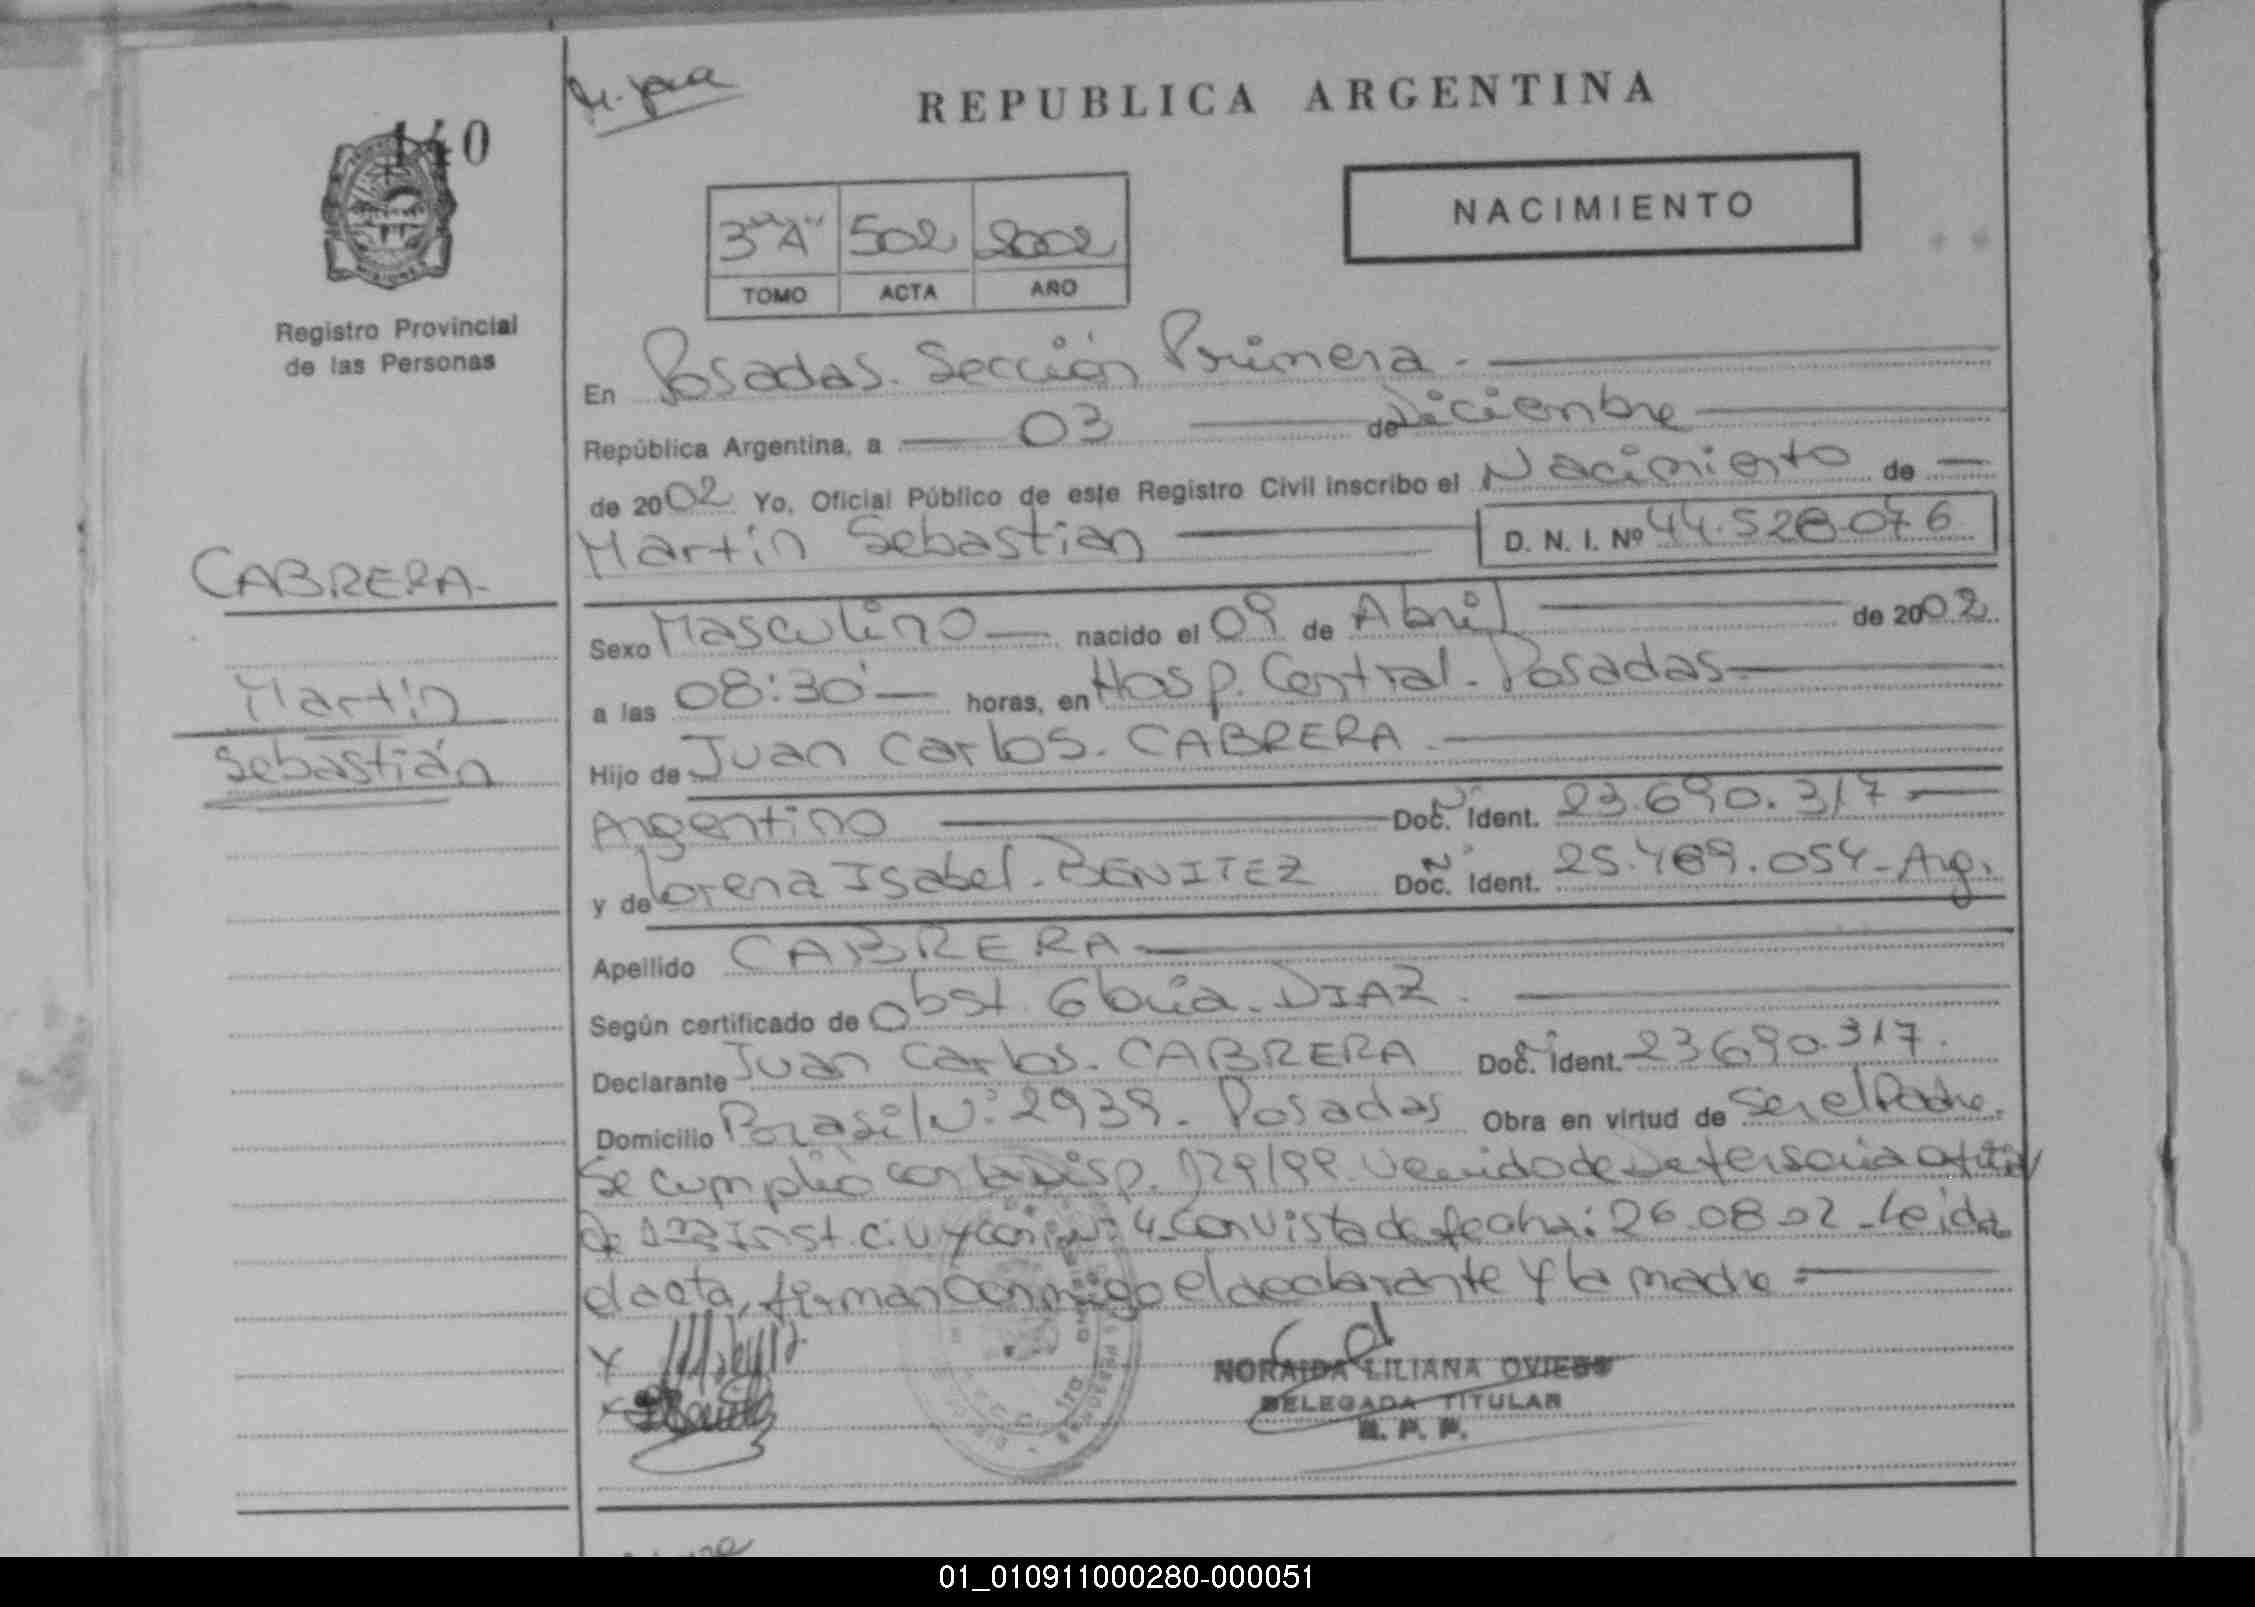 140
REPUBLICA ARGENTINA
3"A" 502 2002
TOMO ACTA AÑO
NACIMIENTO
MISIONES
Registro Provincial
de las Personas
En Posadas. Sección Primera.
República Argentina, a 03 de Diciembre
de 2002 Yo, Oficial Público de este Registro Civil inscribo el Nacimiento de
Martín Sebastián D. N. I. Nº 44.528.076
CABRERA.
Martín
Sebastián
Sexo Masculino nacido el 09 de Abril de 2002.
a las 08:30' horas, en Hosp. Central. Posadas
Hijo de Juan Carlos. CABRERA.
Argentino Doc. Ident. 23.690.317
y de Lorena Isabel. BENITEZ Doc. Ident. 25.489.054-Arg.
Apellido CABRERA
Según certificado de Obst. Gloria. DIAZ.
Declarante Juan Carlos. CABRERA Doc. Ident. 23690.317.
Domicilio Brasil Nº: 2939. Posadas Obra en virtud de Ser el Padre.
Se cumplió con la Disp. 129/99. Venido de Defensoría Oficial
de 1ra Inst. Civ y Com Nº: 4. Con vista de fecha: 26.08.02. Leida
el acta, firman conmigo el declarante y la madre.
NORAIDA LILIANA OVIEDO
DELEGADA TITULAR
R. P. P.
01_010911000280-000051